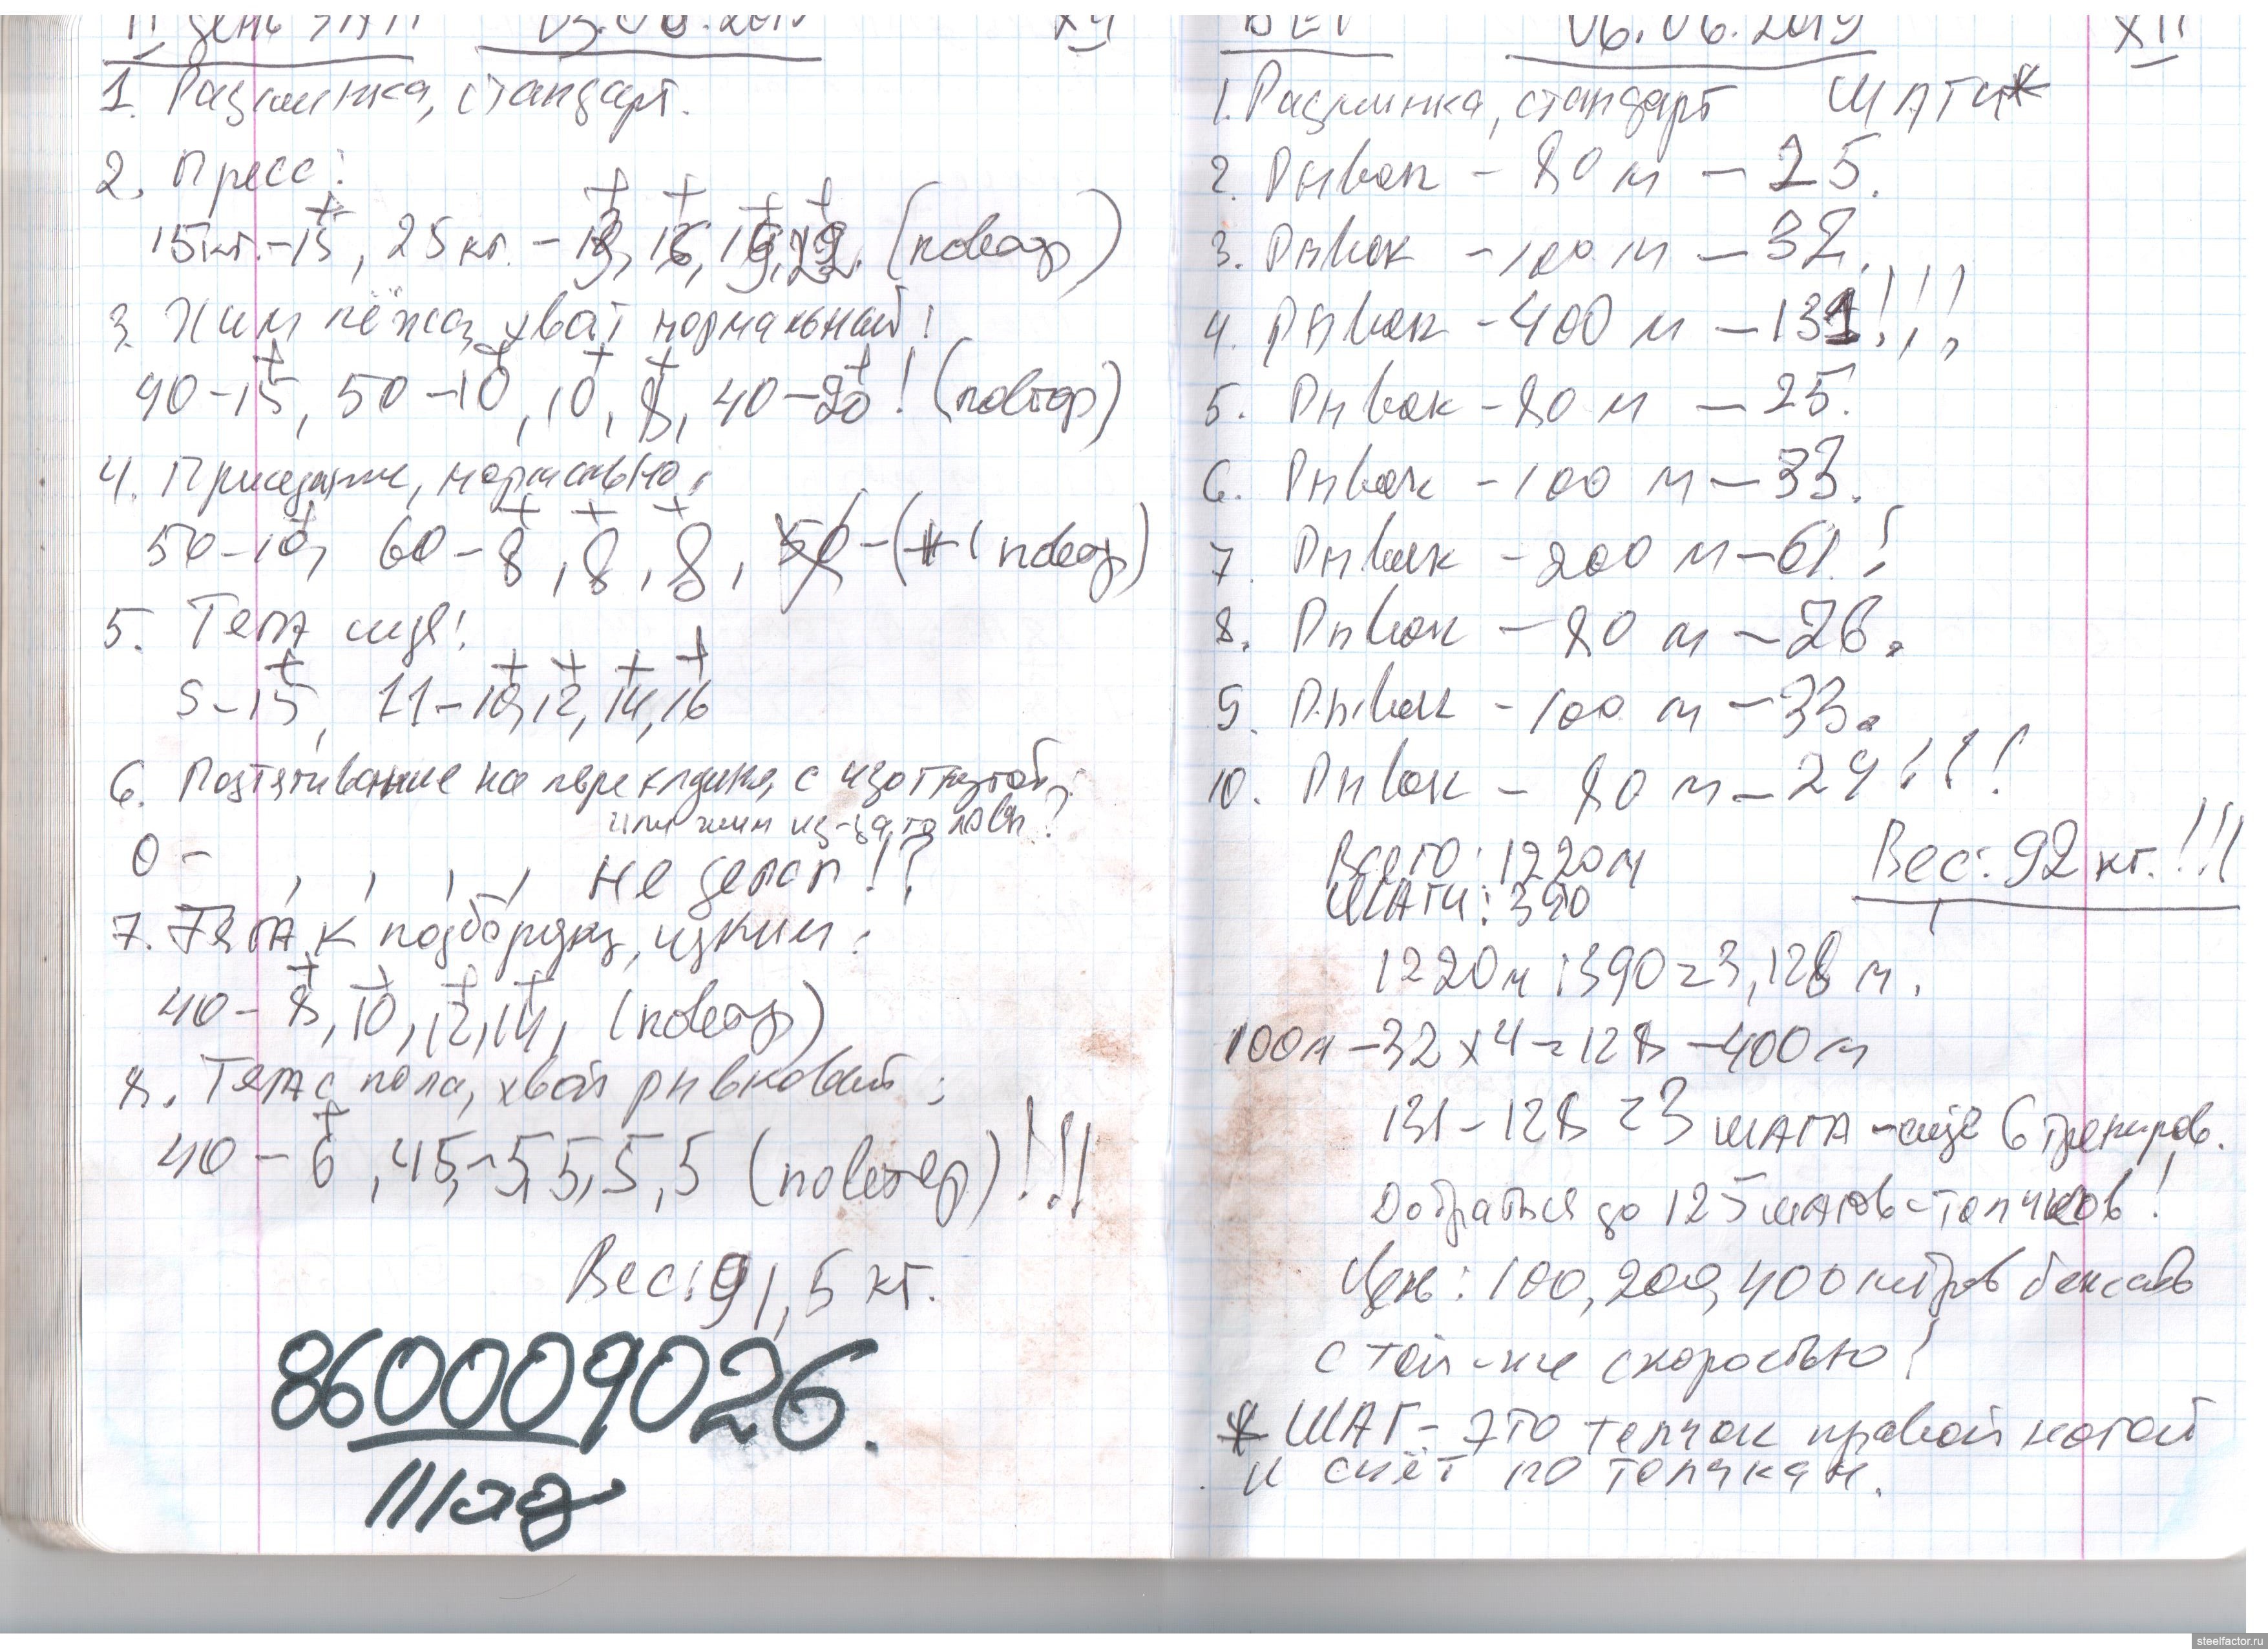 II день
1. Разминка, стандарт.
2. Пресс:
15кг.-15, 25кг. -
3. Жим лёжа, хват нормальный:
40-15, 50-10, 10, 8, 40-20! (повтор)
4. Приседание, нормально:
50-10, 60-8, 8, 8,
5. Тяга шея:
5-15, 11-10, 12, 14, 16
6. Подтягивание на перекладине, с
или жим из-за головы?
0- , , , , не делал!?
7. Тяга к подбородку, узким:
40-8, 10, 12, 14, (повтор)
8. Тяга с пола, хват рывковый:
40-6, 45-5, 5, 5, 5 (повтор)!!!
Вес: 91,5 кг.
860009026.
БЕГ 06.06.2019 XII
1. Разминка, стандарт ШАГИ*
2. Рывок - 80 м - 25.
3. Рывок - 100 м - 32.
4. Рывок - 400 м - 131!!!
5. Рывок - 80 м - 25.
6. Рывок - 100 м - 33.
7. Рывок - 200 м - 61!
8. Рывок - 80 м - 26.
9. Рывок - 100 м - 33.
10. Рывок - 80 м - 24!!!
Всего: 1220м
Вес: 92 кг.!!!
ШАГИ: 390
1220м:390=3,128 м.
100м-32х4=128-400м
131-128=3 ШАГА - ещё 6 трениров.
Добраться до 125 шагов-толчков!
Цель: 100, 200, 400 метров бежать
с той-же скоростью!
* ШАГ - это толчок правой ногой
и счёт по толчкам.
steelfactor.ru